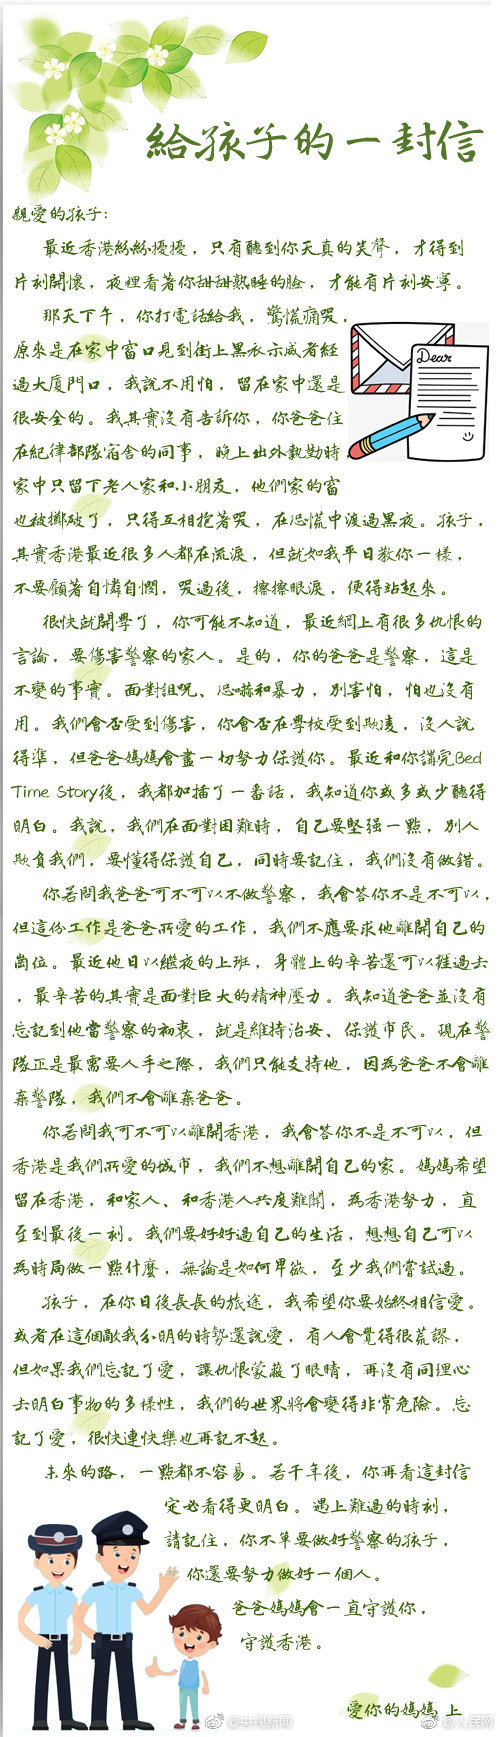 給孩子的一封信
親愛的孩子:
最近香港紛紛擾擾，只有聽到你天真的笑聲，才得到
片刻開懷，夜裡看著你甜甜熟睡的臉，才能有片刻安寧。
那天下午，你打電話給我，驚慌痛哭，
原來是在家中窗口見到街上黑衣示威者經
過大廈門口，我說不用怕，留在家中還是
很安全的。我其實沒有告訴你，你爸爸住
在紀律部隊宿舍的同事，晚上出外執勤時
家中只留下老人家和小朋友，他們家的窗
也被擲破了，只得互相抱著哭，在恐慌中渡過黑夜。孩子，
其實香港最近很多人都在流淚，但就如我平日教你一樣，
不要顧著自憐自憫，哭過後，擦擦眼淚，便得站起來。
很快就開學了，你可能不知道，最近網上有很多仇恨的
言論，要傷害警察的家人。是的，你的爸爸是警察，這是
不變的事實。面對詛咒、恐嚇和暴力，別害怕，怕也沒有
用。我們會否受到傷害，你會否在學校受到欺凌，沒人說
得準，但爸爸媽媽會盡一切努力保護你。最近和你講完Bed
Time Story後，我都加插了一番話，我知道你或多或少聽得
明白。我說，我們在面對困難時，自己要堅强一點，別人
欺負我們，要懂得保護自己，同時要記住，我們沒有做錯。
你若問我爸爸可不可以不做警察，我會答你不是不可以，
但這份工作是爸爸所愛的工作，我們不應要求他離開自己的
崗位。最近他日以繼夜的上班，身體上的辛苦還可以捱過去
，最辛苦的其實是面對巨大的精神壓力。我知道爸爸並沒有
忘記到他當警察的初衷，就是維持治安、保護市民。現在警
隊正是最需要人手之際，我們只能支持他，因為爸爸不會離
棄警隊，我們不會離棄爸爸。
你若問我可不可以離開香港，我會答你不是不可以，但
香港是我們所愛的城市，我們不想離開自己的家。媽媽希望
留在香港，和家人、和香港人共度難關，為香港努力，直
至到最後一刻。我們要好好過自己的生活，想想自己可以
為時局做一點什麼，無論是如何卑微，至少我們嘗試過。
孩子，在你日後長長的旅途，我希望你要始終相信愛。
或者在這個敵我分明的時勢還說愛，有人會覺得很荒謬，
但如果我們忘記了愛，讓仇恨蒙蔽了眼睛，再沒有同理心
去明白事物的多樣性，我們的世界將會變得非常危險。忘
記了愛，很快連快樂也再記不起。
未來的路，一點都不容易。若干年後，你再看這封信
定必看得更明白。遇上難過的時刻，
請記住，你不單要做好警察的孩子，
你還要努力做好一個人。
爸爸媽媽會一直守護你，
守護香港。
愛你的媽媽 上
Dear
@央视新闻
@人民网